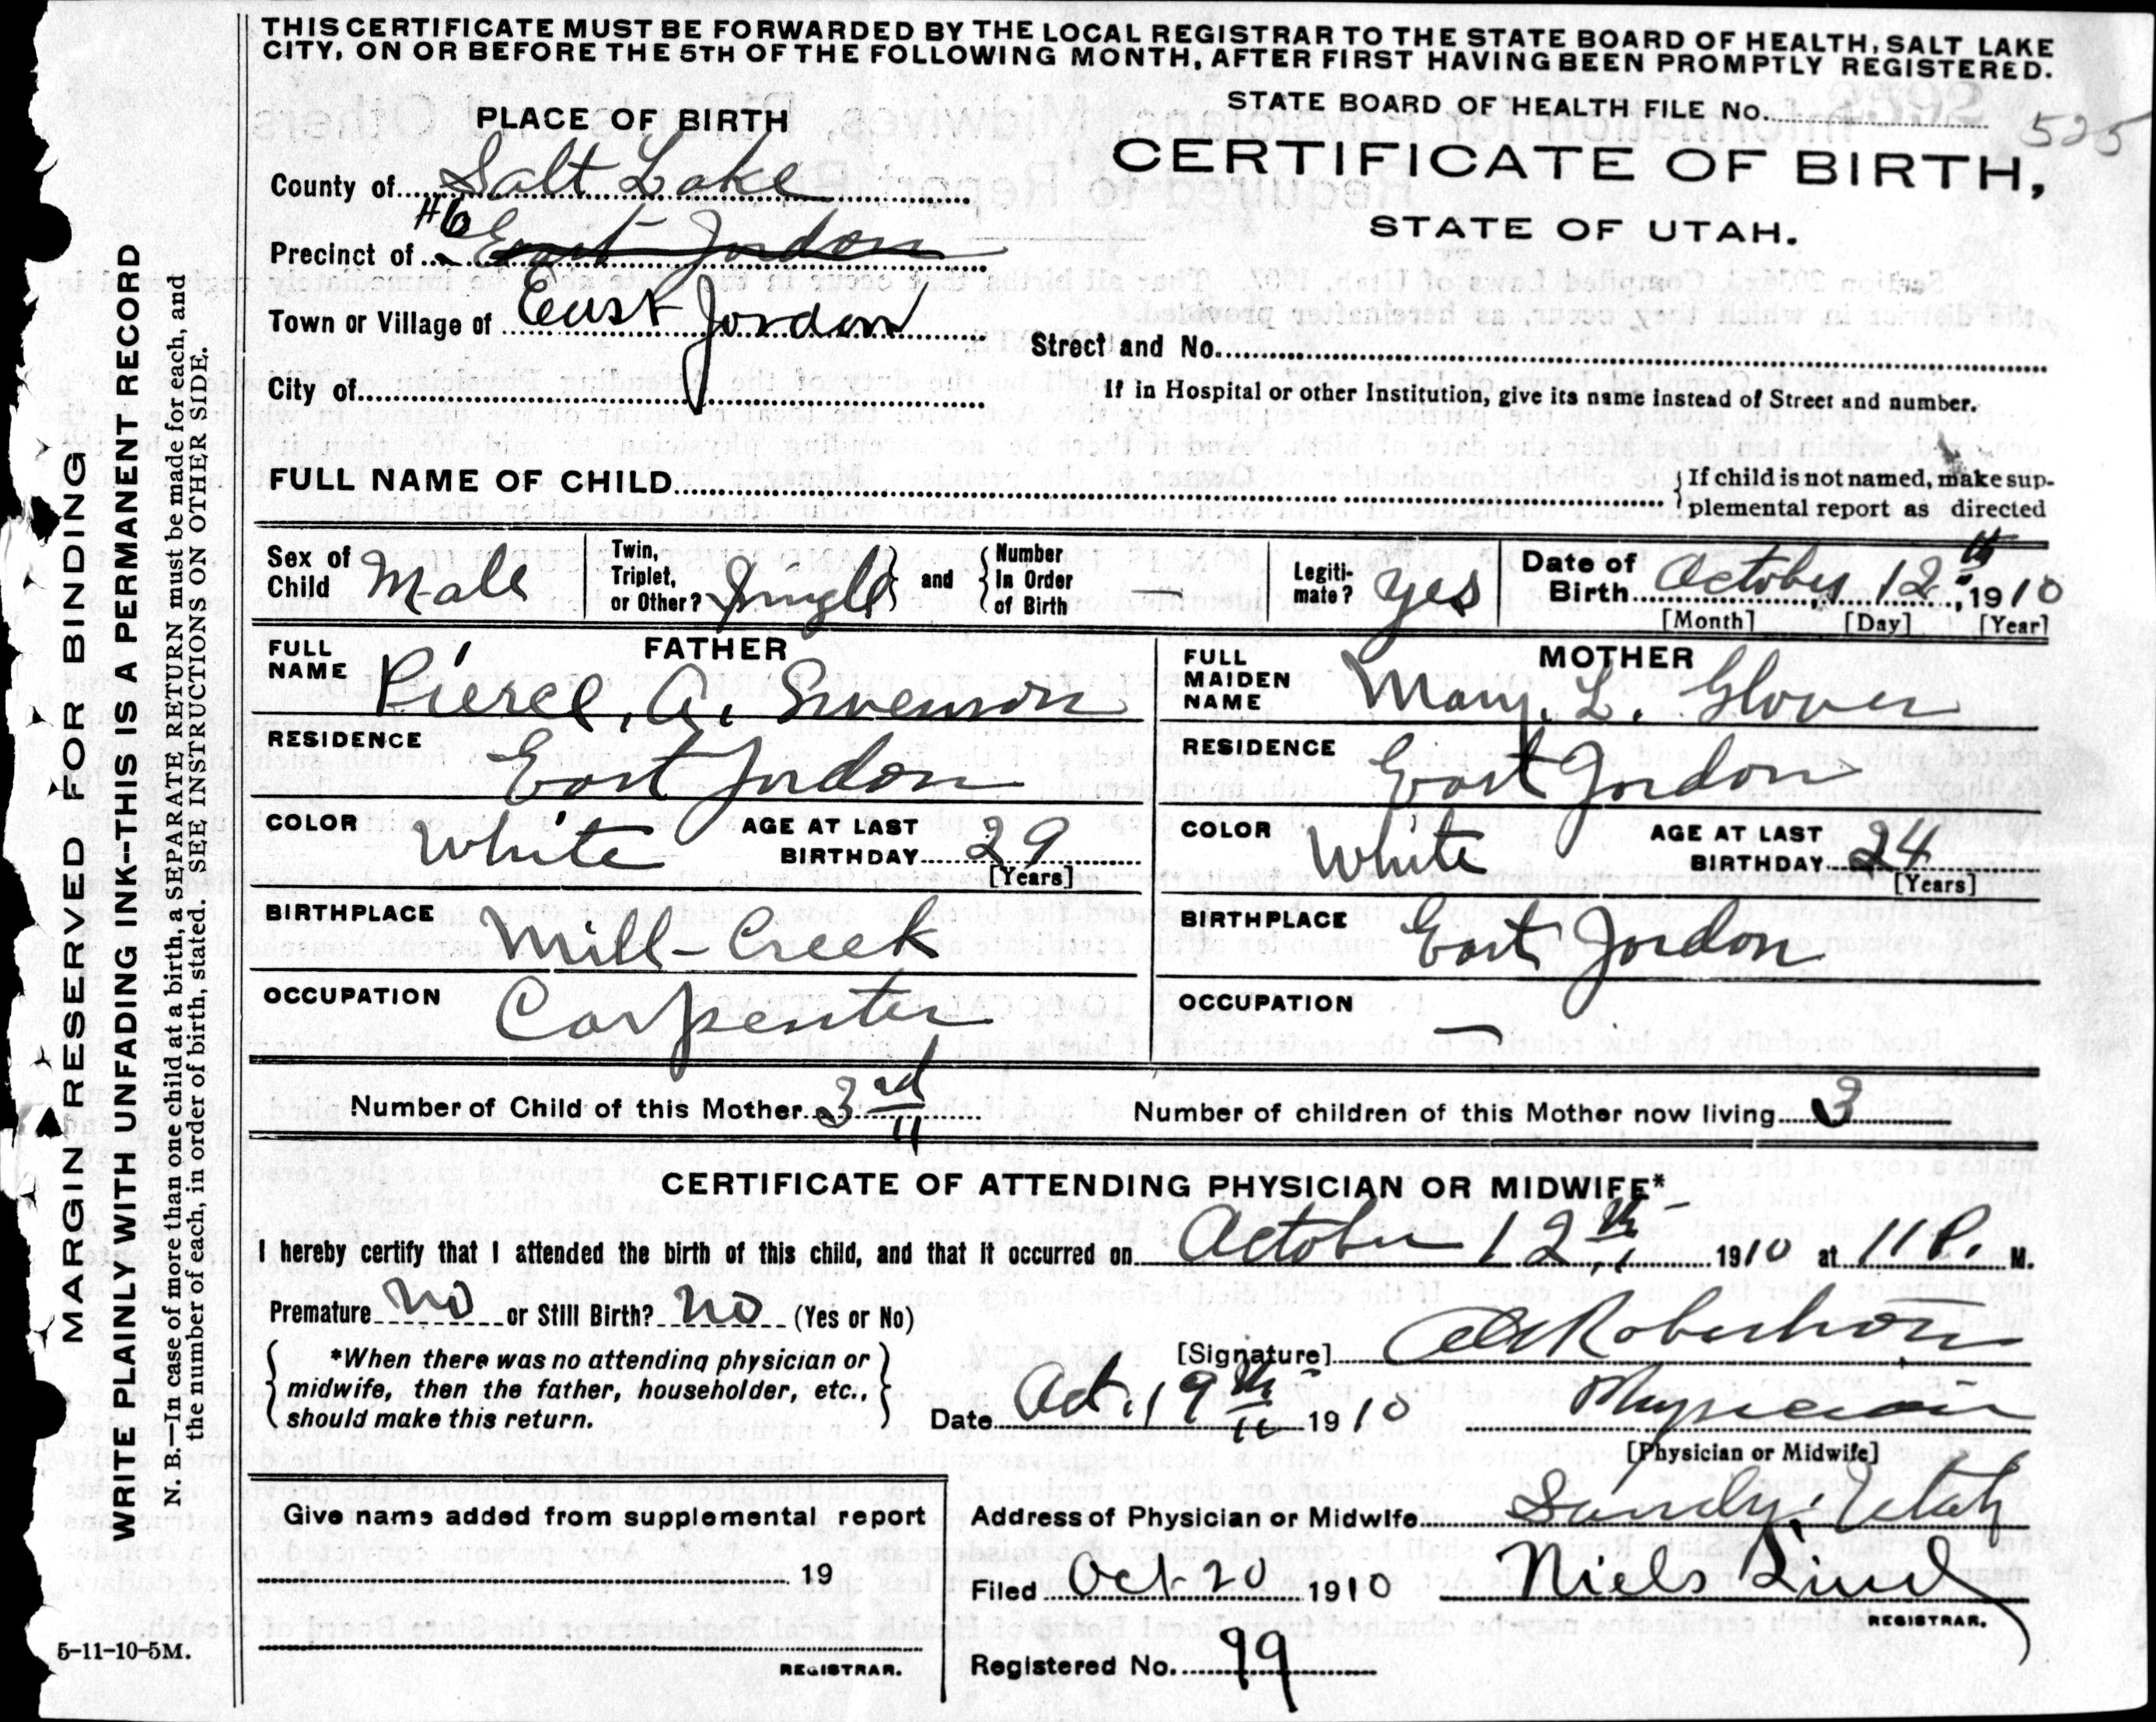 THIS CERTIFICATE MUST BE FORWARDED BY THE LOCAL REGISTRAR TO THE STATE BOARD OF HEALTH, SALT LAKE
CITY, ON OR BEFORE THE 5TH OF THE FOLLOWING MONTH, AFTER FIRST HAVING BEEN PROMPTLY REGISTERED.
STATE BOARD OF HEALTH FILE No. 525
CERTIFICATE OF BIRTH,
STATE OF UTAH.
PLACE OF BIRTH
County of Salt Lake
#6
Precinct of East Jordon
Town or Village of East Jordon
City of
Street and No.
If in Hospital or other Institution, give its name instead of Street and number.
FULL NAME OF CHILD
If child is not named, make sup-
plemental report as directed
Sex of Child Male
Twin, Triplet, or Other? Single
and Number In Order of Birth —
Legiti-mate? yes
Date of Birth October 12th, 1910
[Month] [Day] [Year]
FATHER
FULL NAME Pierce, A. Swenson
RESIDENCE East Jordon
COLOR White AGE AT LAST BIRTHDAY 29
[Years]
BIRTHPLACE Mill-Creek
OCCUPATION Carpenter
MOTHER
FULL MAIDEN NAME Mary. L. Glover
RESIDENCE East Jordon
COLOR White AGE AT LAST BIRTHDAY 24
[Years]
BIRTHPLACE East Jordon
OCCUPATION —
Number of Child of this Mother 3rd Number of children of this Mother now living 3
CERTIFICATE OF ATTENDING PHYSICIAN OR MIDWIFE*
I hereby certify that I attended the birth of this child, and that it occurred on October 12th, 1910 at 11 P. M.
Premature no or Still Birth? no (Yes or No)
*When there was no attending physician or
midwife, then the father, householder, etc.,
should make this return.
[Signature] Robertson
Date Oct. 19th 1910 Physician
[Physician or Midwife]
Address of Physician or Midwife Sandy, Utah
Filed Oct 20 1910 Niels Lind
REGISTRAR.
Registered No. 99
Give name added from supplemental report
19
REGISTRAR.
MARGIN RESERVED FOR BINDING
WRITE PLAINLY WITH UNFADING INK--THIS IS A PERMANENT RECORD
N. B.—In case of more than one child at a birth, a SEPARATE RETURN must be made for each, and
the number of each, in order of birth, stated. SEE INSTRUCTIONS ON OTHER SIDE.
5-11-10-5M.